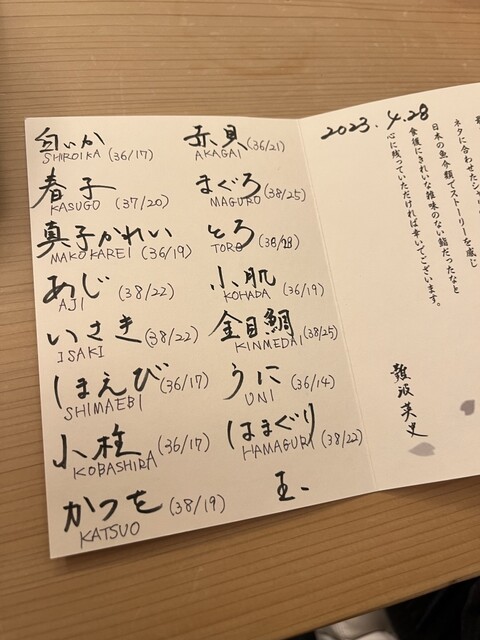 白いか
SHIROIKA (36/17)
春子
KASUGO (37/20)
真子かれい
MAKOKAREI (36/19)
あじ
AJI (38/22)
いさき (38/22)
ISAKI
しまえび (36/17)
SHIMAEBI
小柱 (36/17)
KOBASHIRA
かつを (38/19)
KATSUO
赤貝 (36/21)
AKAGAI
まぐろ
MAGURO (38/25)
とろ
TORO (38/28)
小肌
KOHADA (36/19)
金目鯛
KINMEDAI (38/25)
うに
UNI (36/14)
はまぐり
HAMAGURI (38/22)
玉、
2023.4.28
ネタに合わせたシャリ
日本の魚介類でストーリーを感じ
食後にきれいな雑味のない鮨だったなと
心に残っていただければ幸いでございます。
難波英史